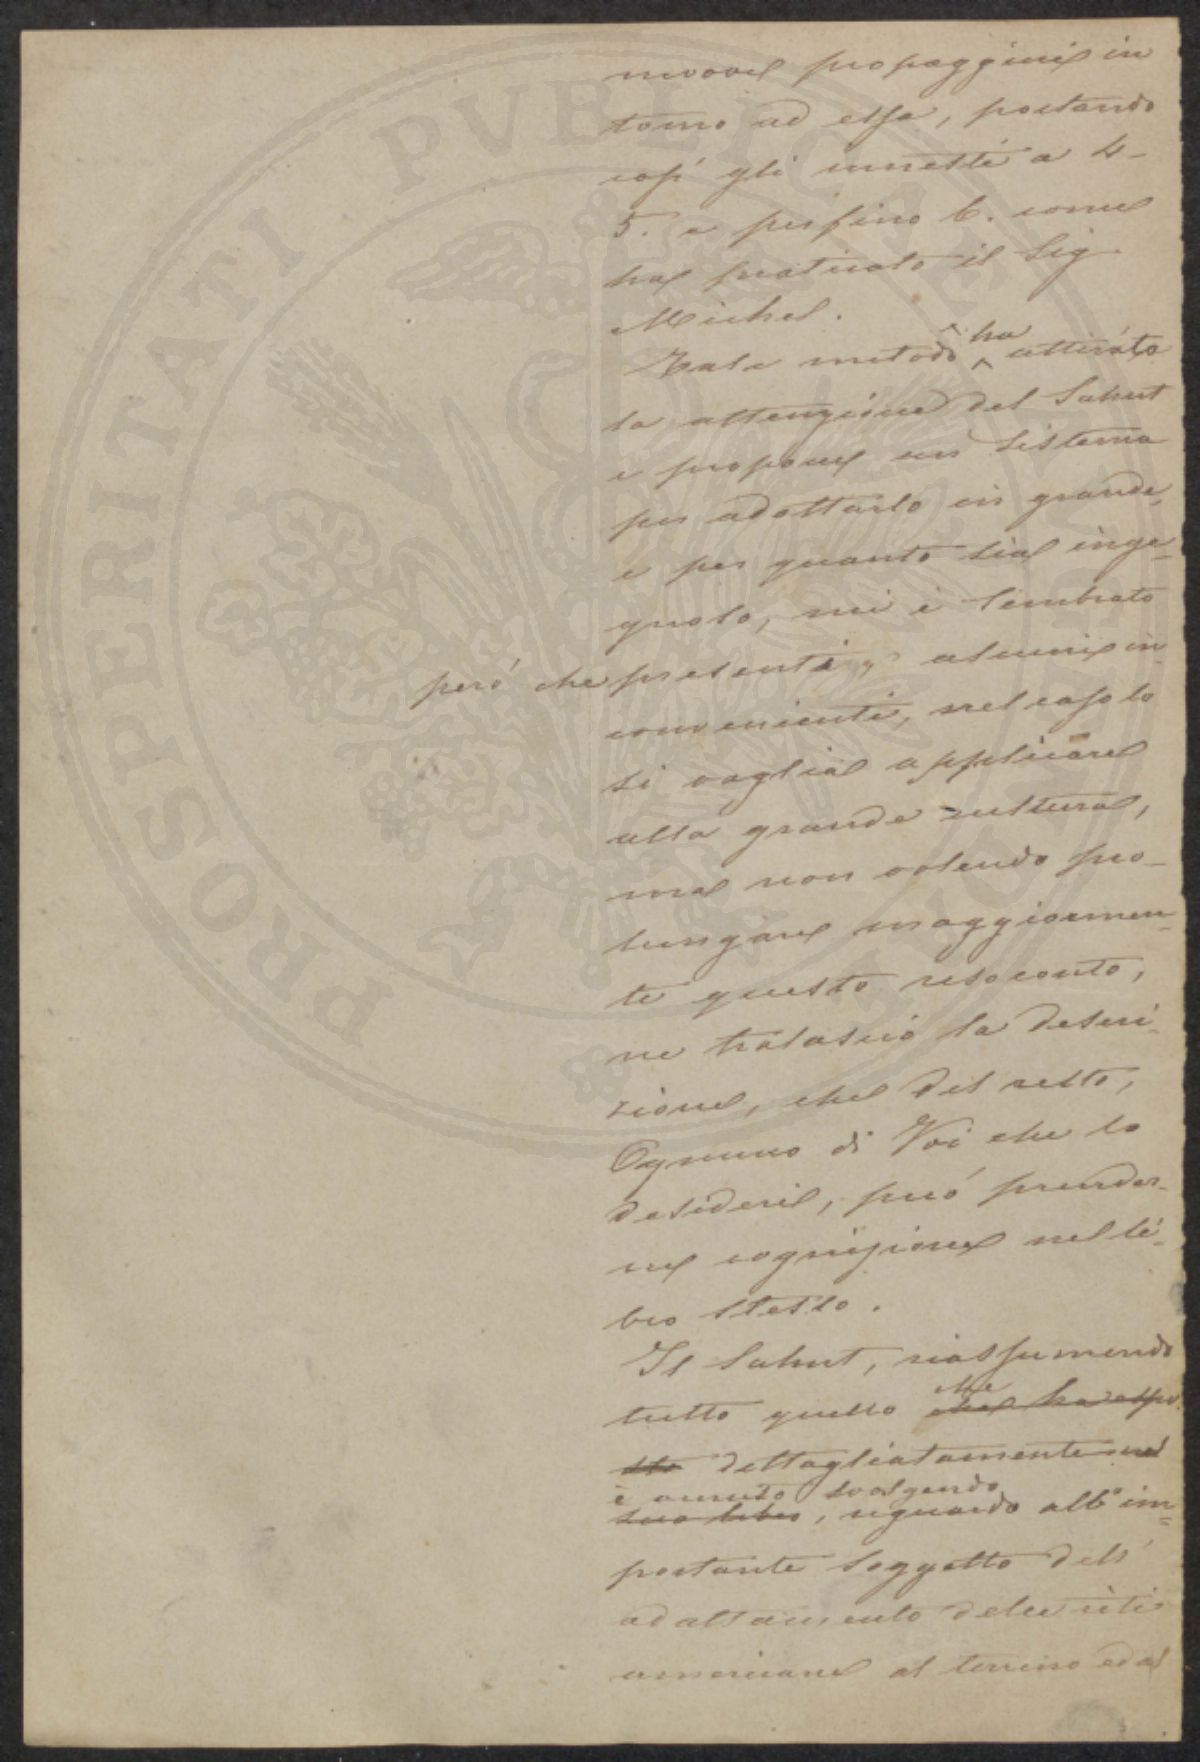 nuove propaggini in
torno ad essa, portando
così gli innesti a 4-
5. e perfino 6. come
ha praticato il Sig
Michel.
Tale metodo ha attirato
la attenzione del Sahut
e propone un sistema
per adottarlo in grande,
e per quanto sia inge-
gnoso, mi è sembrato
però che presenti alcuni in-
convenienti, nel caso lo
si voglia applicare
alla grande cultura,
ma non volendo pro-
lungare maggiormen-
te questo resoconto,
ne tralascio la descri-
zione, che del resto,
Ognuno di Voi che lo
desideri, può prender-
ne cognizione nel li-
bro stesso.
Il Sahut, riassumendo
tutto quello che che ha espo
sto dettagliatamente nel
è venuto svolgendo
suo libro, riguardo all'im-
portante soggetto dell'
adattamento delle viti
americane al terreno ed al
PROSPERITATI PVBLICAE